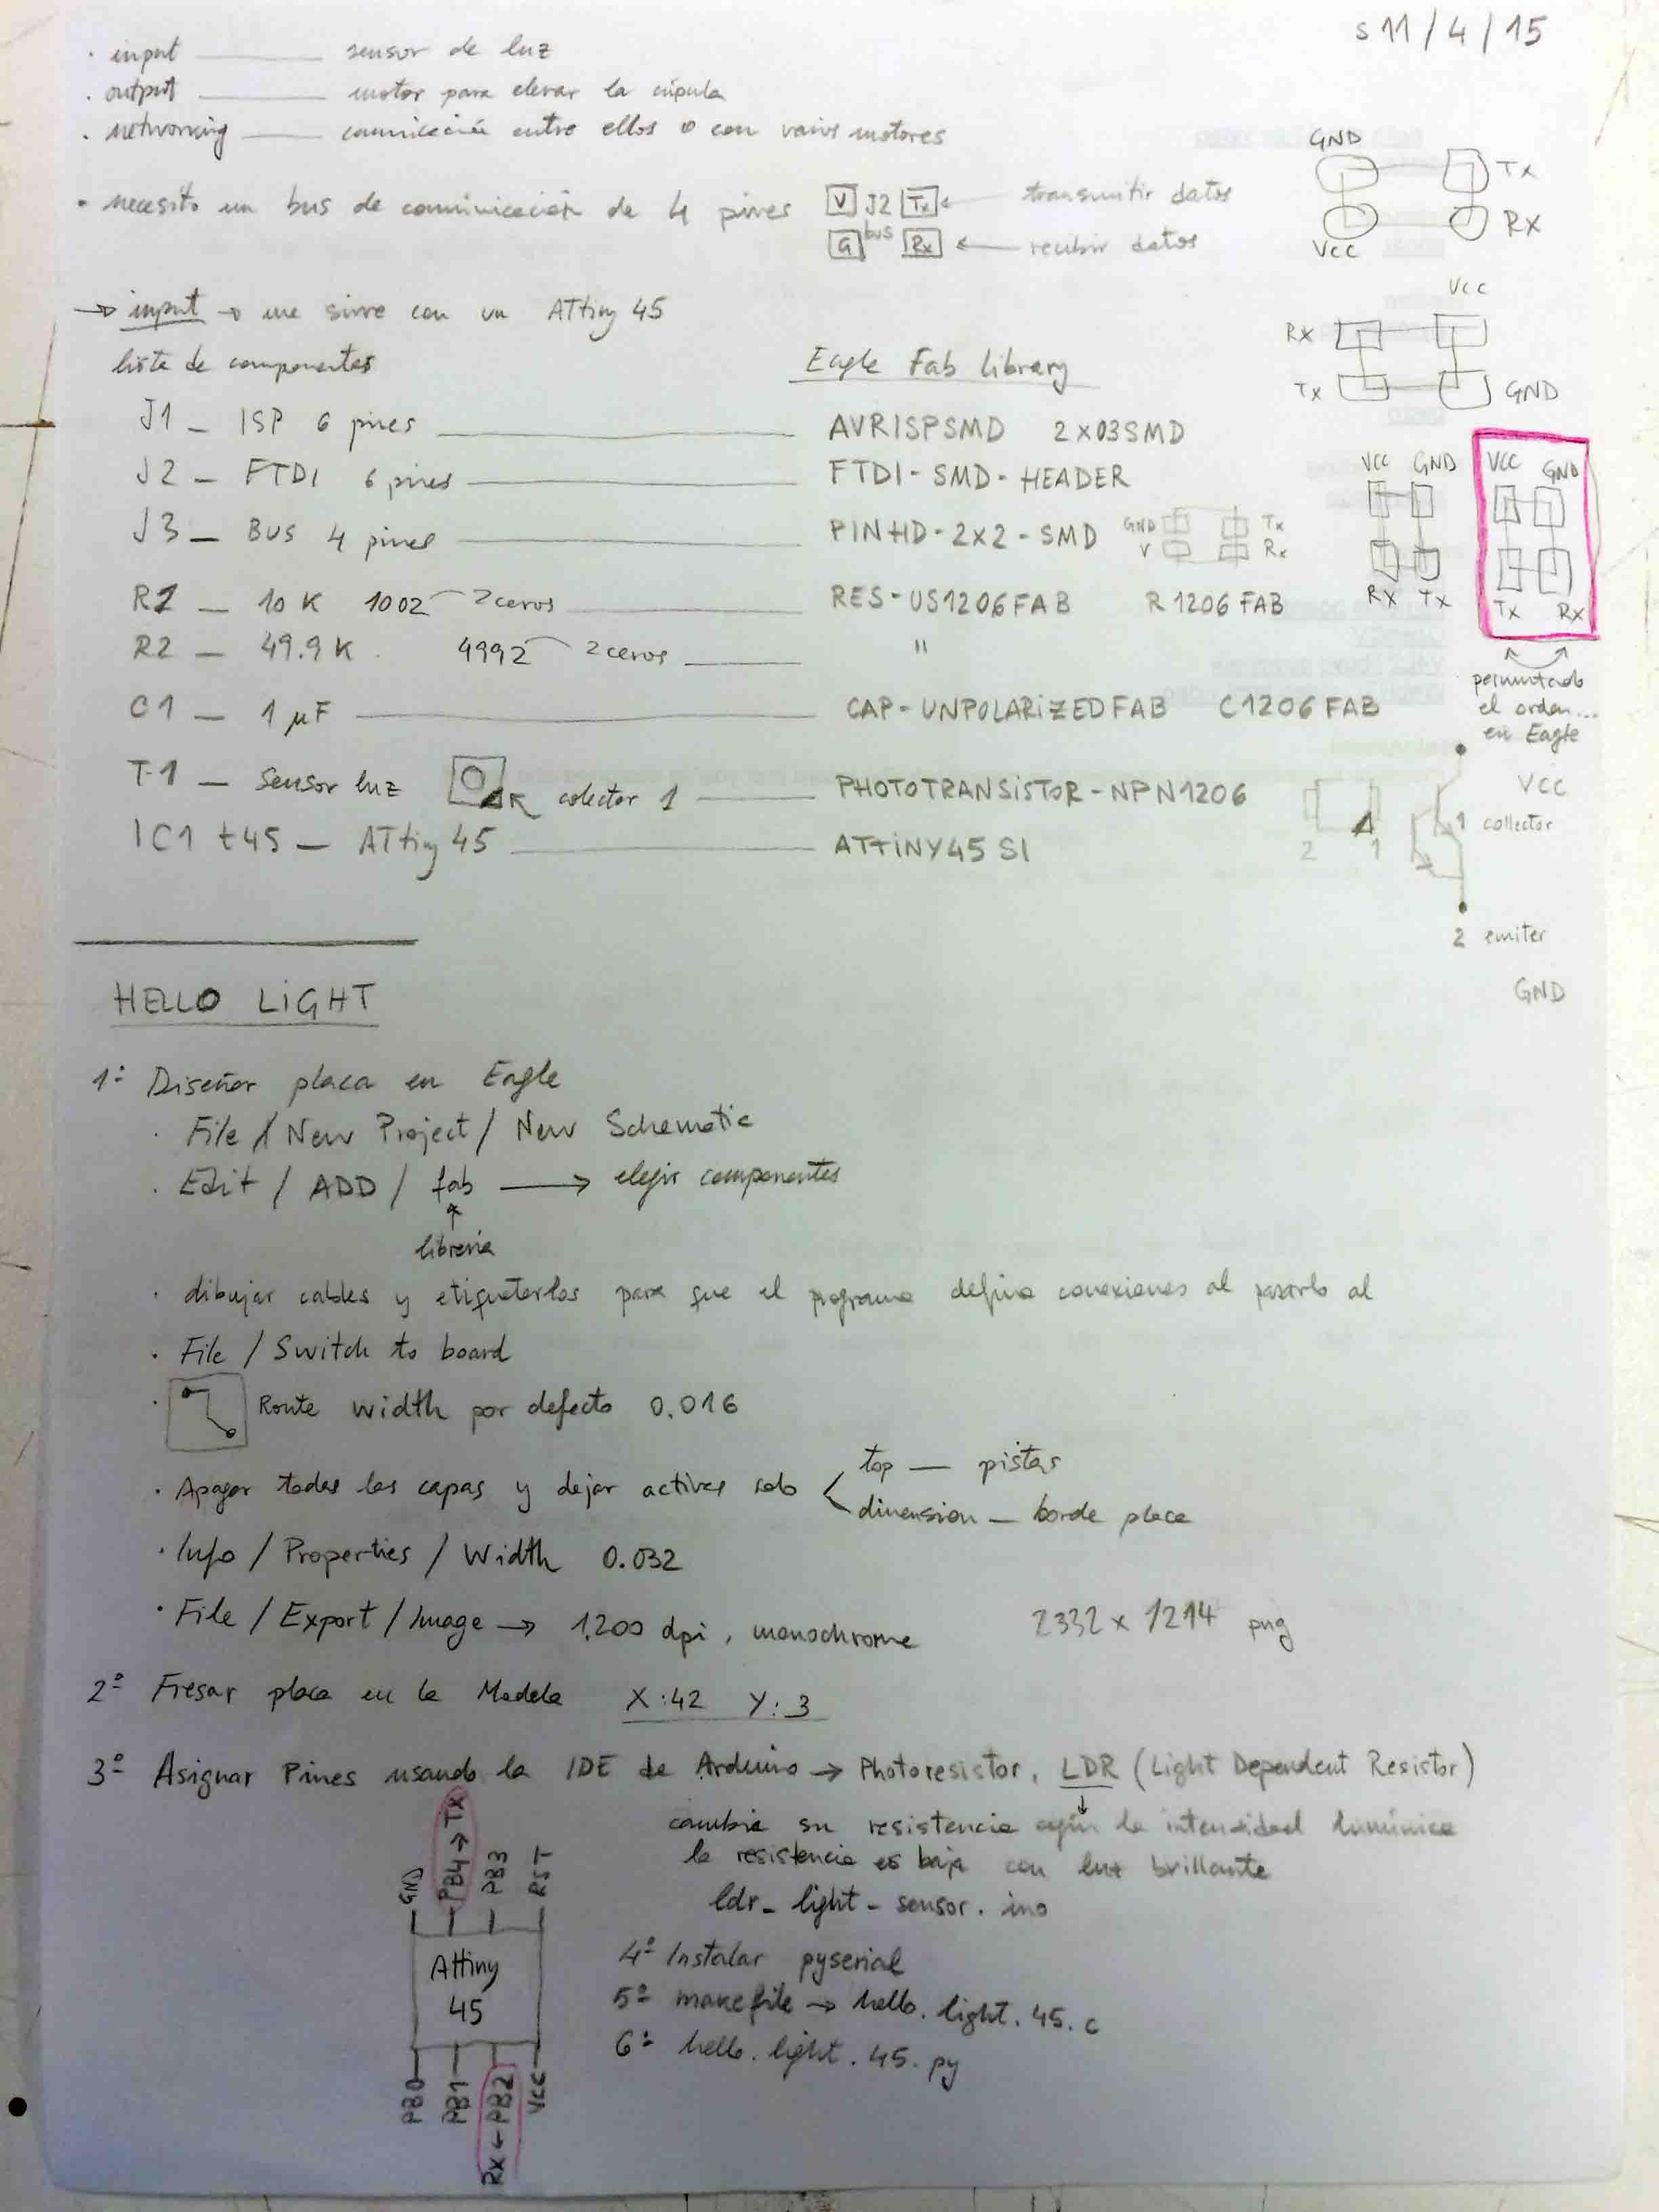 s 11/4/15
· input ——— sensor de luz
· output ——— motor para elevar la cúpula
· networking ——— comunicación entre ellos o con varios motores
GND Tx
Vcc Rx
· necesito un bus de comunicación de 4 pines V J2 Tx ← transmitir datos
G bus Rx ← recibir datos
→ input → me sirve con un ATtiny 45
Vcc
Rx
Tx GND
lista de componentes Eagle Fab Library
J1 — ISP 6 pines ——— AVRISPSMD 2x03SMD
J2 — FTDI 6 pines ——— FTDI-SMD-HEADER
J3 — BUS 4 pines ——— PINHD-2x2-SMD GND Tx
V Rx
VCC GND VCC GND
Rx Tx Tx Rx
R1 — 10 K 1002 2 ceros ——— RES-US1206FAB R1206FAB
R2 — 49.9 K 4992 2 ceros ——— "
permutado
el orden...
en Eagle
C1 — 1 µF ——— CAP-UNPOLARiZEDFAB C1206FAB
T1 — Sensor luz colector 1 ——— PHOTOTRANSiSTOR-NPN1206
VCC
2 1 1 collector
IC1 t45 — ATtiny 45 ——— ATTiNY45SI
2 emiter
GND
HELLO LiGHT
1º Diseñar placa en Eagle
· File / New Project / New Schematic
· Edit / ADD / fab → elegir componentes
↑
librería
· dibujar cables y etiquetarlos para que el programa defina conexiones al pasarlo al
· File / Switch to board
· Route width por defecto 0.016
· Apagar todas las capas y dejar activas solo < top — pistas
dimension — borde placa
· Info / Properties / Width 0.032
· File / Export / Image → 1200 dpi, monochrome 2332 x 1214 png
2º Fresar placa en la Modela X:42 Y:3
3º Asignar Pines usando la IDE de Arduino → Photoresistor, LDR (Light Dependent Resistor)
↓
cambia su resistencia según la intensidad lumínica
la resistencia es baja con luz brillante
ldr_light-sensor.ino
GND PB4→Tx PB3 RST
Attiny
45
PB0 PB1 Rx←PB2 VCC
4º Instalar pyserial
5º makefile → hello.light.45.c
6º hello.light.45.py